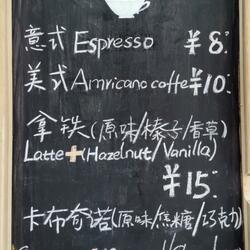 意式 Espresso ¥8
美式 Amricano coffe ¥10
拿铁(原味/榛子/香草)
Latte+(Hazelnut/Vanilla)
¥15
卡布奇诺(原味/焦糖/巧克力)